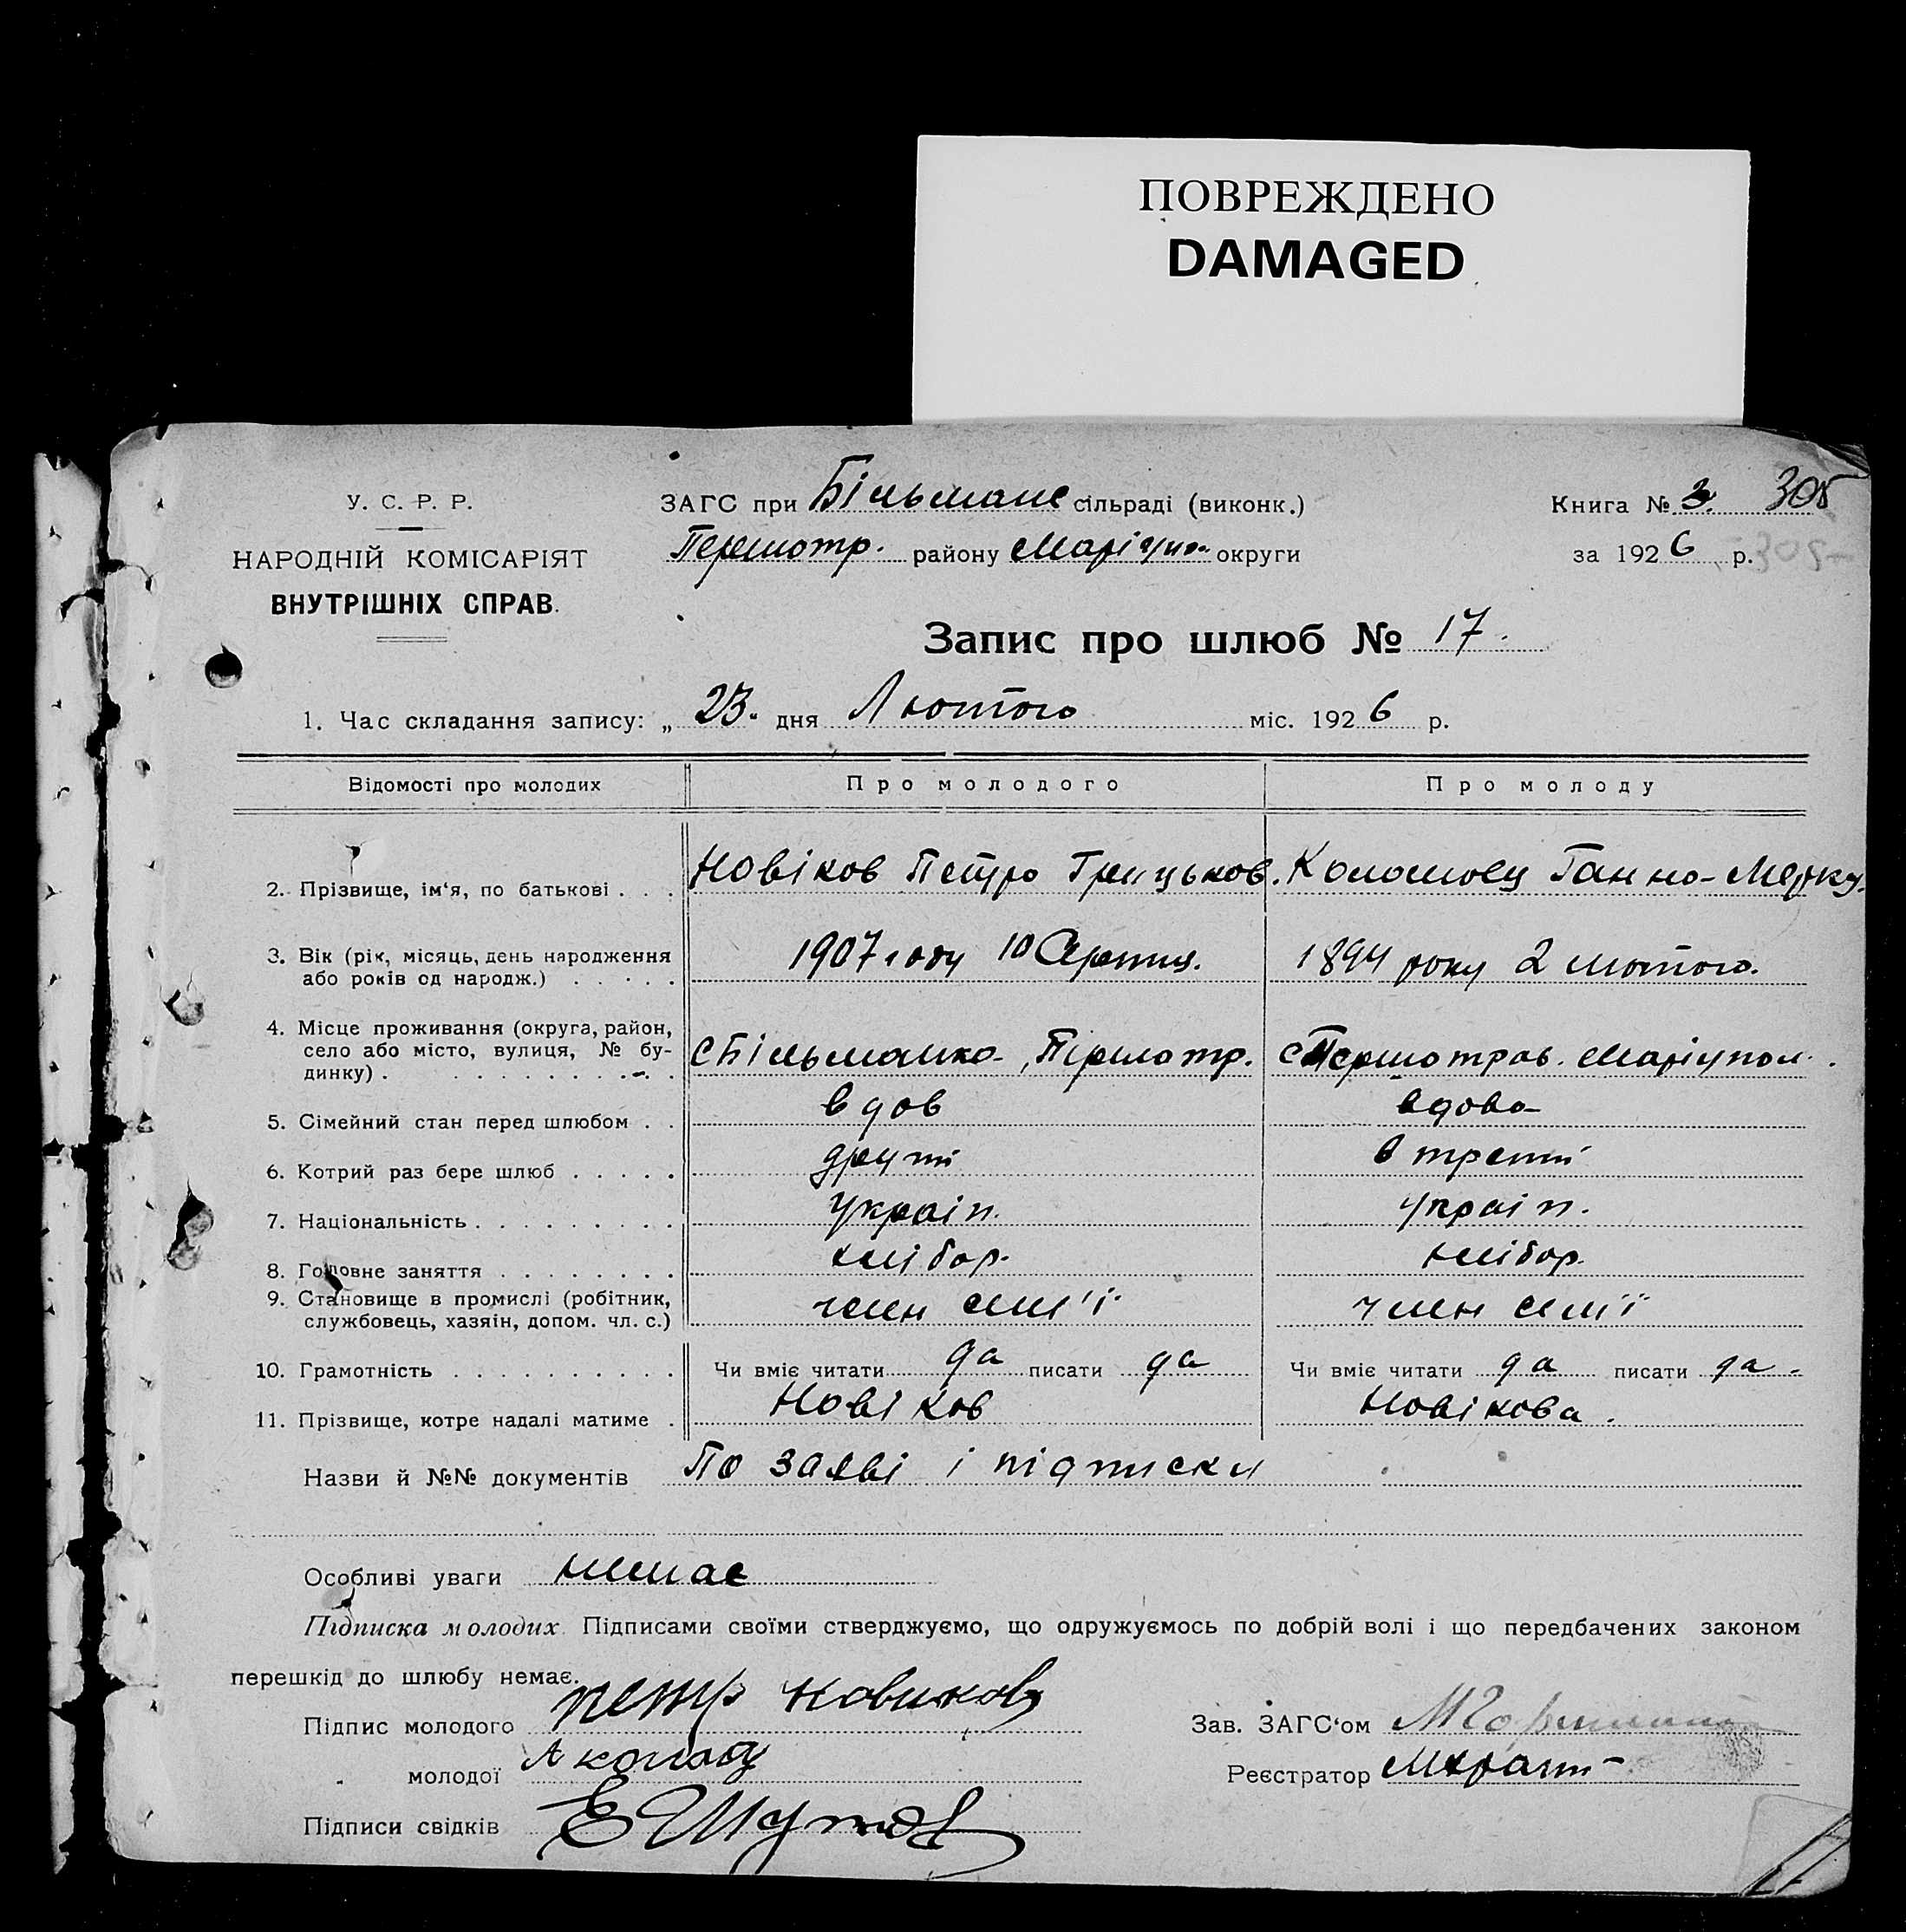 ПОВРЕЖДЕНО
DAMAGED
У. С. Р. Р.
НАРОДНІЙ КОМІСАРІЯТ
ВНУТРІШНІХ СПРАВ.
ЗАГС при Більманс сільраді (виконк.)
Першотр. району Маріуп. округи
Книга № 3. 305
за 1926 р. 305
Запис про шлюб № 17.
1. Час складання запису: „ 23. дня Лютого міс. 1926 р.
Відомості про молодих Про молодого Про молоду
2. Прізвище, ім‘я, по батькові . . . Новіков Петро Грицьков. Коломоец Ганна Мерку.
3. Вік (рік, місяць, день народження
або років од народж.) . . . . . 1907 году 10 Серпня. 1894 року 2 лютого.
4. Місце проживання (округа, район,
село або місто, вулиця, № бу-
динку) . . . . . . . . . . . с Більманка, Першотр. с Першотрав. Маріупол.
5. Сімейний стан перед шлюбом . . вдов вдова
6. Котрий раз бере шлюб . . . . . в третій
7. Національність . . . . . . . . . україн. україн.
8. Головне заняття . . . . . . . . хлібор. хлібор.
9. Становище в промислі (робітник,
службовець, хазяін, допом. чл. с.) член сем'ї член семї
10. Грамотність . . . . . . . . . . Чи вміє читати да писати да Чи вміє читати да писати да
11. Прізвище, котре надалі матиме . Новіков Новікова.
Назви й №№ документів По заяві і підписки
Особливі уваги немає
Підписка молодих. Підписами своїми стверджуємо, що одружуємось по добрій волі і що передбачених законом
перешкід до шлюбу немає.
Підпис молодого Петр Новиков
Зав. ЗАГС‘ом
молодої
Реєстратор
Підписи свідків